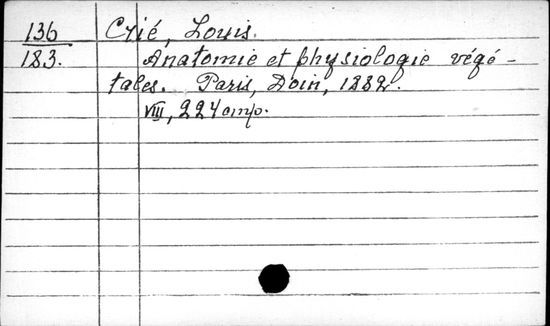 136 Crié, Louis.
183. Anatomie et physiologie végé-
tales. Paris, Doin, 1882.
VIII, 224